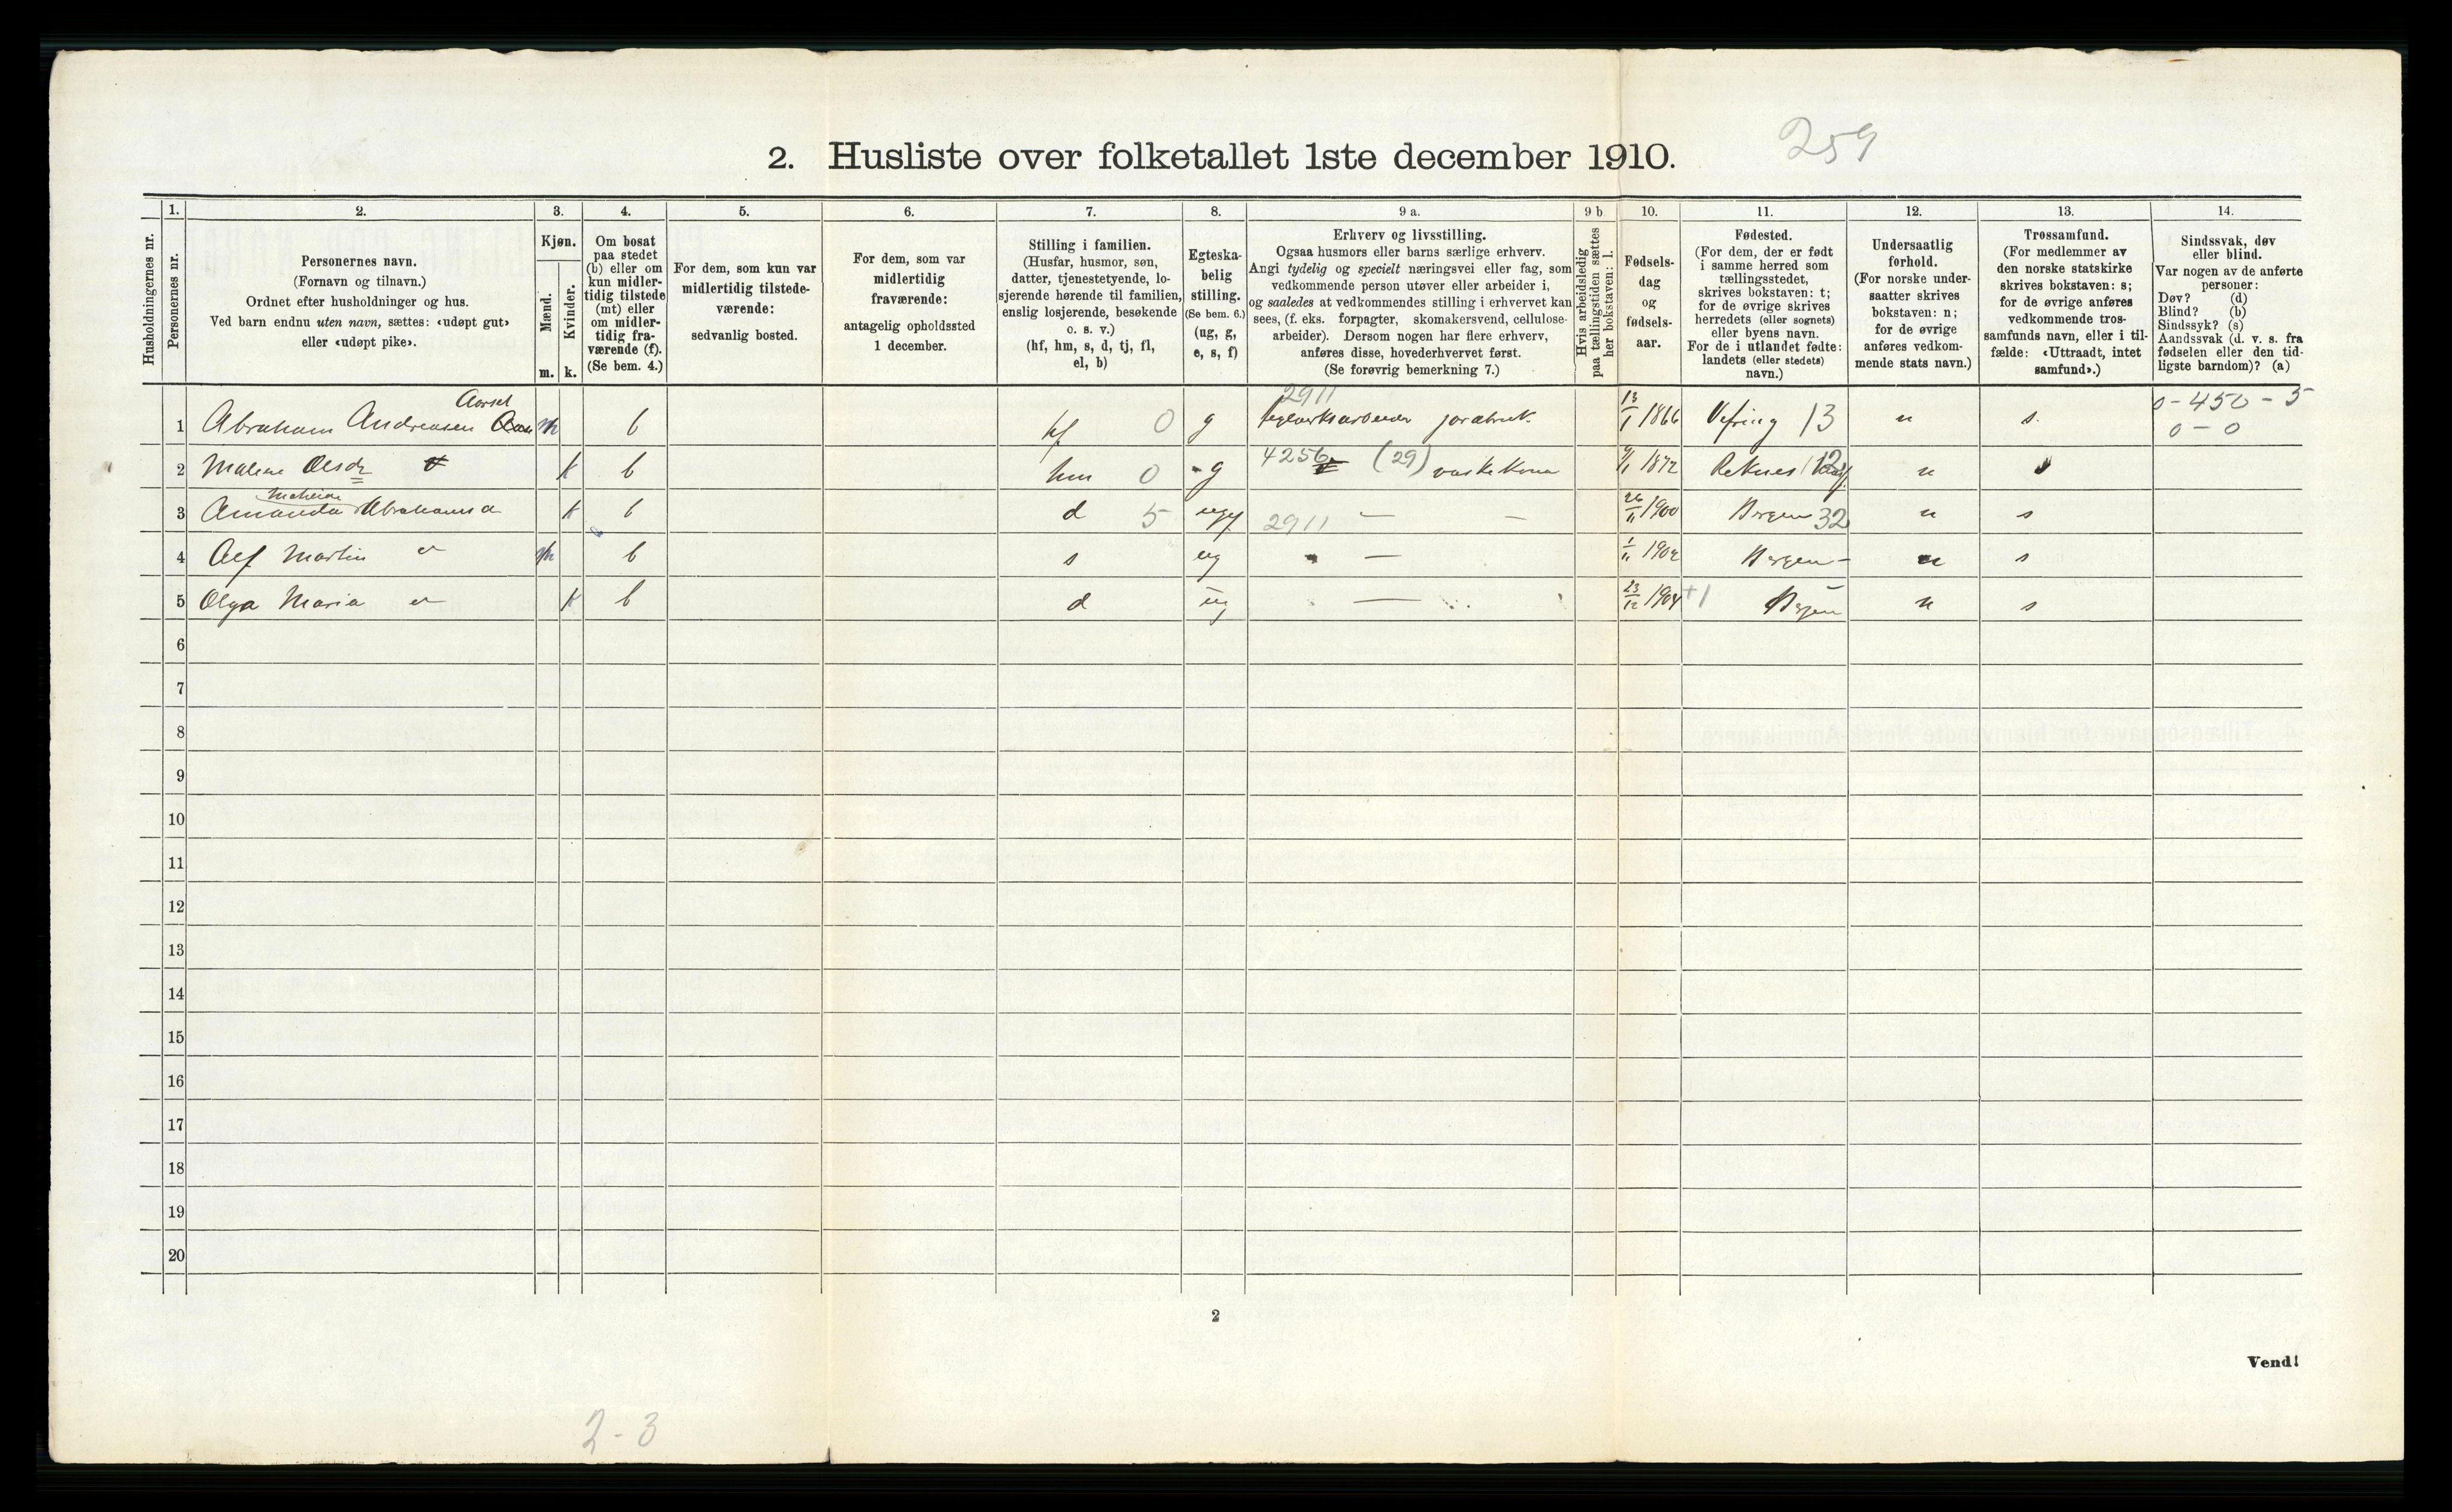 259
2. Husliste over folketallet 1ste december 1910.
Husholdningernes nr.
1.
Personernes nr.
2.
Personernes navn.
(Fornavn og tilnavn.)
Ordnet efter husholdninger og hus.
Ved barn endnu uten navn, sættes: «udøpt gut»
eller «udøpt pike».
3.
Kjøn.
Mænd.
Kvinder.
m. k.
4.
Om bosat
paa stedet
(b) eller om
kun midler-
tidig tilstede
(mt) eller
om midler-
tidig fra-
værende (f).
(Se bem. 4.)
5.
For dem, som kun var
midlertidig tilstede-
værende:
sedvanlig bosted.
6.
For dem, som var
midlertidig
fraværende:
antagelig opholdssted
1 december.
7.
Stilling i familien.
(Husfar, husmor, søn,
datter, tjenestetyende, lo-
sjerende hørende til familien,
enslig losjerende, besøkende
o. s. v.)
(hf, hm, s, d, tj, fl,
el, b)
8.
Egteska-
belig
stilling.
(Se bem. 6.)
(ug, g,
e, s, f)
9 a.
Erhverv og livsstilling.
Ogsaa husmors eller barns særlige erhverv.
Angi tydelig og specielt næringsvei eller fag, som
vedkommende person utøver eller arbeider i,
og saaledes at vedkommendes stilling i erhvervet kan
sees, (f. eks. forpagter, skomakersvend, cellulose-
arbeider). Dersom nogen har flere erhverv,
anføres disse, hovederhvervet først.
(Se forøvrig bemerkning 7.)
9 b
Hvis arbeidsledig
paa tællingstiden sættes
her bokstaven: l.
10.
Fødsels-
dag
og
fødsels-
aar.
11.
Fødested.
(For dem, der er født
i samme herred som
tællingsstedet,
skrives bokstaven: t;
for de øvrige skrives
herredets (eller sognets)
eller byens navn.
For de i utlandet fødte:
landets (eller stedets)
navn.)
12.
Undersaatlig
forhold.
(For norske under-
saatter skrives
bokstaven: n;
for de øvrige
anføres vedkom-
mende stats navn.)
13.
Trossamfund.
(For medlemmer av
den norske statskirke
skrives bokstaven: s;
for de øvrige anføres
vedkommende tros-
samfunds navn, eller i til-
fælde: «Uttraadt, intet
samfund».)
14.
Sindssvak, døv
eller blind.
Var nogen av de anførte
personer:
Døv? (d)
Blind? (b)
Sindssyk? (s)
Aandssvak (d. v. s. fra
fødselen eller den tid-
ligste barndom)? (a)
Aarset 2911 0-450-5
1 Abraham Andreasen m b hf 0 g jordbruk 13/1 1866 Vefring 13 n s. 0-0
2 Malene Olsdr k b hm 0 g 4256 (29) vaskekone 1872 n s
3 Amanda Abrahamsd k b d 5 ug 2911 — — 26/11 1900 Bergen 32 n s
4 Alf Martin m b s ug — 1/11 1902 Bergen n s
5 Olga Maria k b d ug — 23/12 1904 +1 Bergen n s
6
7
8
9
10
11
12
13
14
15
16
17
18
19
20
2
Vend!
2-3